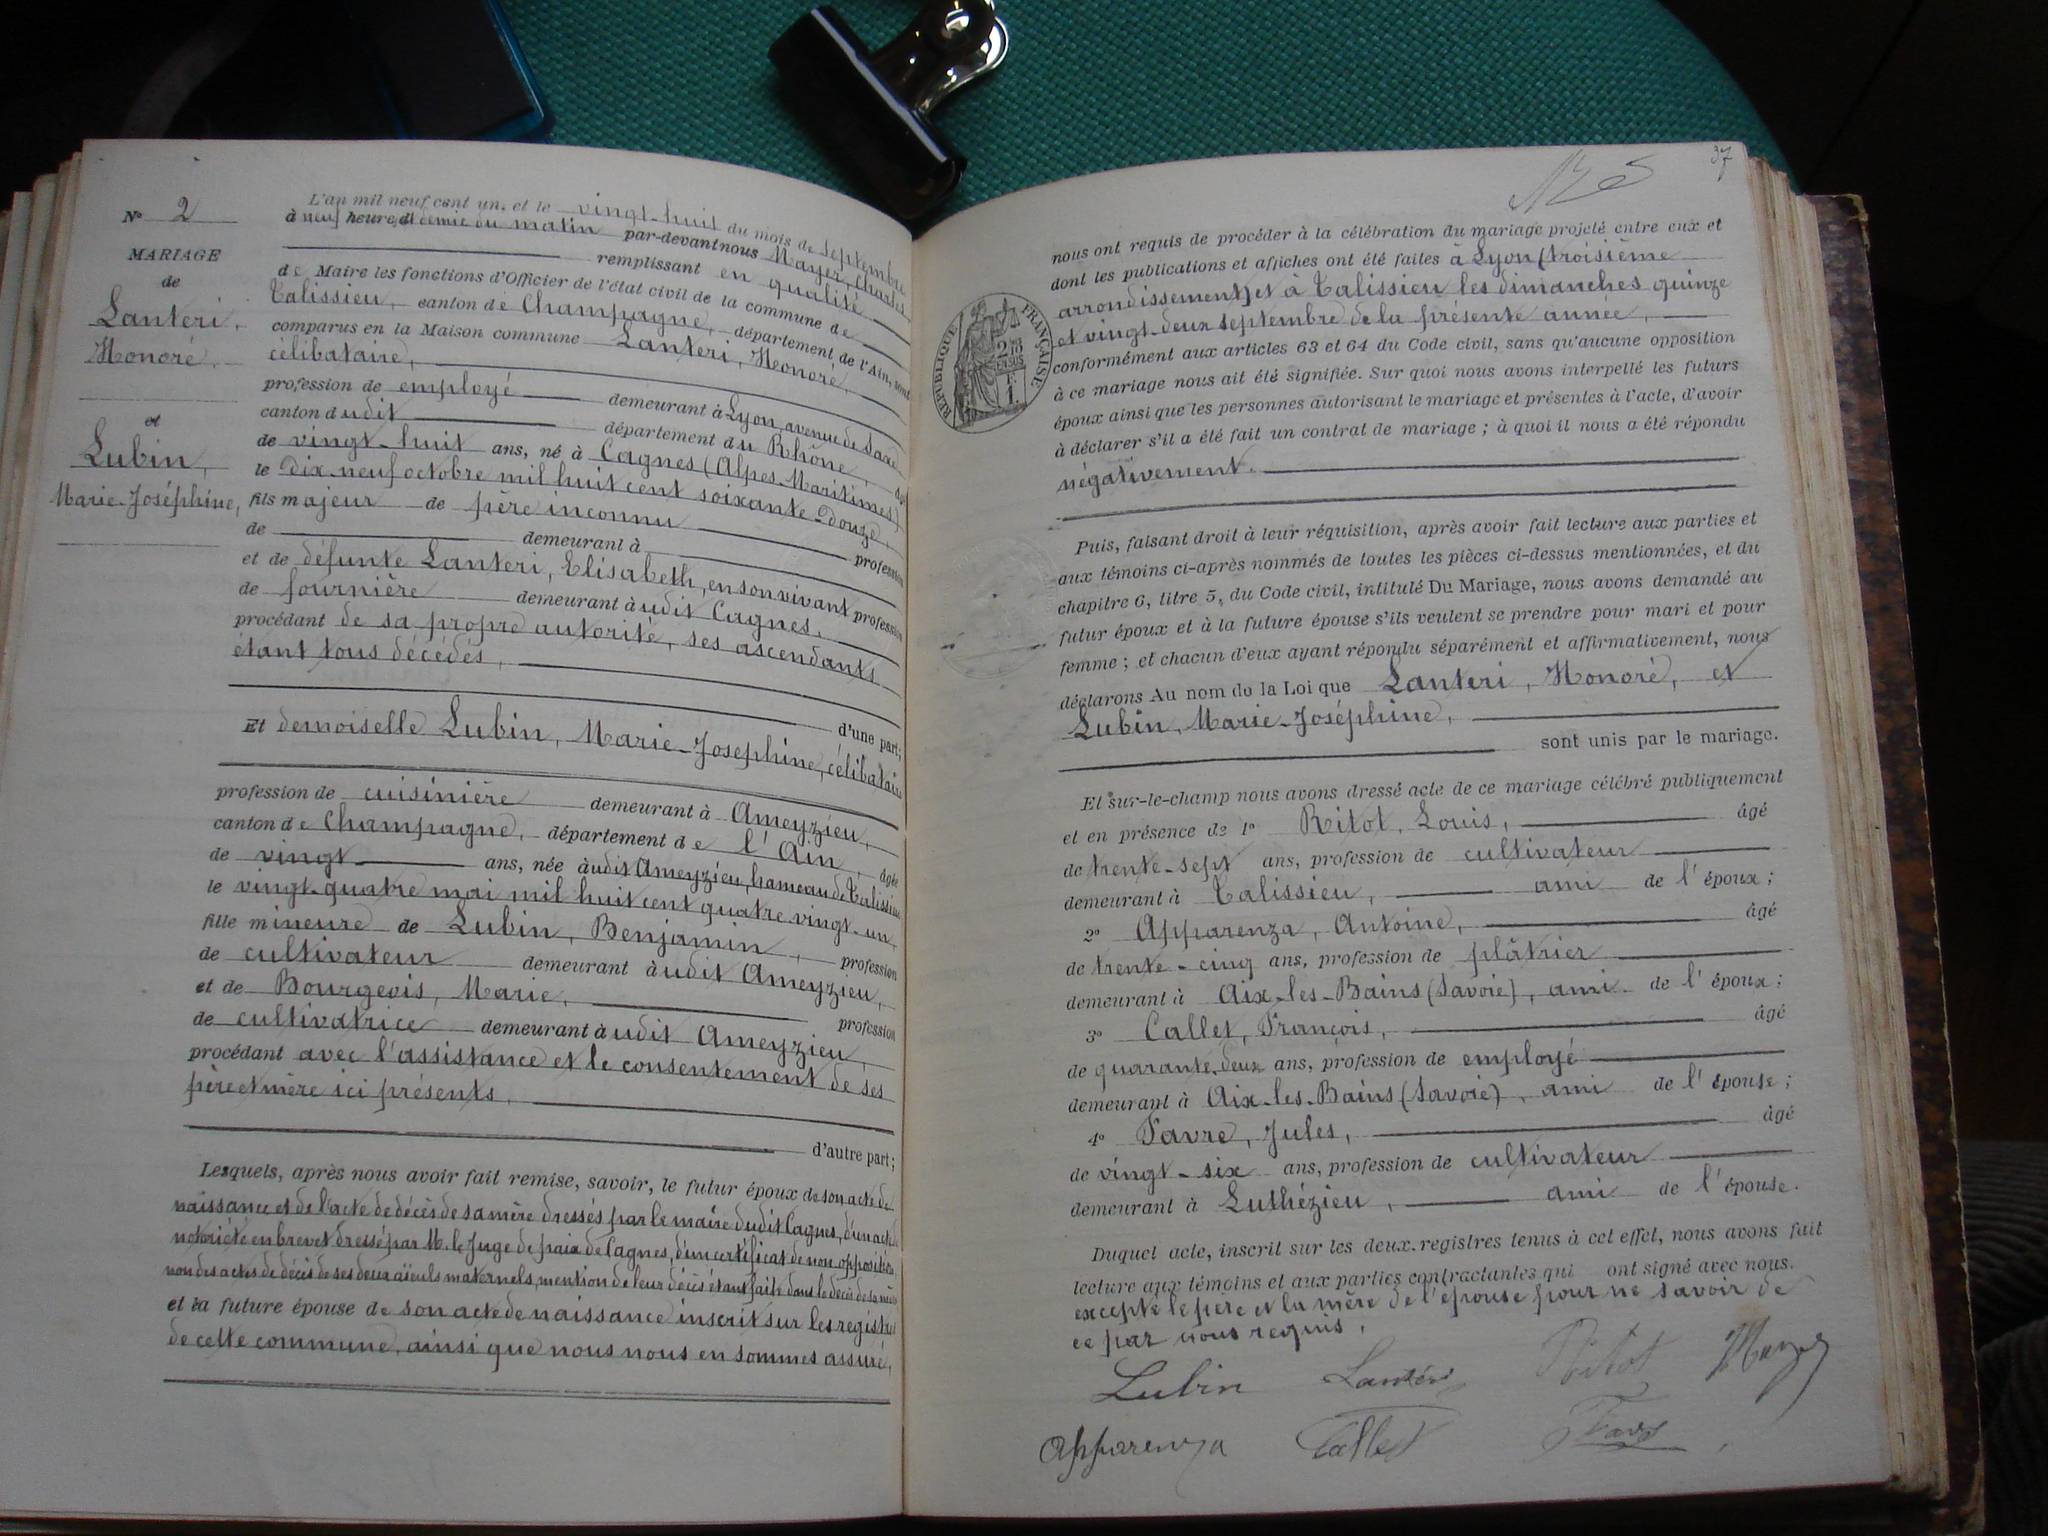 N° 2
MARIAGE
de
Lanteri,
Honoré,
et
Lubin,
Marie-Joséphine,
L'an mil neuf cent un, et le vingt-huit du mois de septembre
à neuf heures et demie du matin par-devant nous Mayer, Charles,
remplissant en qualité
de Maire les fonctions d'Officier de l'état civil de la commune de
Talissieu, canton de Champagne, département de l'Ain, sont
comparus en la Maison commune Lanteri, Honoré,
célibataire,
profession de employé demeurant à Lyon, avenue de Saxe
canton dudit département du Rhône, âgé
de vingt-huit ans, né à Cagnes (Alpes-Maritimes)
le dix-neuf octobre mil huit cent soixante-douze,
fils majeur de père inconnu
de demeurant à profession
et de défunte Lanteri, Elisabeth, en son vivant profession
de fournière demeurant à udit Cagnes,
procédant de sa propre autorité, ses ascendants
étant tous décédés,
d'une part;
Et demoiselle Lubin, Marie-Josephine, célibataire
profession de cuisinière demeurant à Ameyzieu,
canton de Champagne, département de l'Ain, âgée
de vingt ans, née à udit Ameyzieu, hameau de Talissieu
le vingt-quatre mai mil huit cent quatre vingt-un,
fille mineure de Lubin, Benjamin, profession
de cultivateur demeurant à udit Ameyzieu,
et de Bourgeois, Marie, profession
de cultivatrice demeurant à udit Ameyzieu
procédant avec l'assistance et le consentement de ses
père et mère ici présents,
d'autre part;
Lesquels, après nous avoir fait remise, savoir, le futur époux de son acte de
naissance et de l'acte de décès de sa mère dressés par le maire dudit Cagnes, d'un acte de
notoriété en brevet dressé par M. le Juge de paix de Cagnes, d'un certificat de non opposition,
non des actes de décès de ses deux aïeuls maternels, mention de leur décès étant faite dans le décès de sa mère
et la future épouse de son acte de naissance inscrit sur les registres
de cette commune, ainsi que nous nous en sommes assuré,
37
RÉPUBLIQUE FRANÇAISE
nous ont requis de procéder à la célébration du mariage projeté entre eux et
dont les publications et affiches ont été faites à Lyon (troisième
arrondissement) et à Talissieu les dimanches quinze
et vingt-deux septembre de la présente année,
conformément aux articles 63 et 64 du Code civil, sans qu'aucune opposition
à ce mariage nous ait été signifiée. Sur quoi nous avons interpellé les futurs
époux ainsi que les personnes autorisant le mariage et présentes à l'acte, d'avoir
à déclarer s'il a été fait un contrat de mariage; à quoi il nous a été répondu
négativement.
Puis, faisant droit à leur réquisition, après avoir fait lecture aux parties et
aux témoins ci-après nommés de toutes les pièces ci-dessus mentionnées, et du
chapitre 6, titre 5, du Code civil, intitulé Du Mariage, nous avons demandé au
futur époux et à la future épouse s'ils veulent se prendre pour mari et pour
femme; et chacun d'eux ayant répondu séparément et affirmativement, nous
déclarons Au nom de la Loi que Lanteri, Honoré, et
Lubin, Marie-Joséphine,
sont unis par le mariage.
Et sur-le-champ nous avons dressé acte de ce mariage célébré publiquement
et en présence de 1° Ritot, Louis, âgé
de trente-sept ans, profession de cultivateur
demeurant à Talissieu, ami de l'époux;
2° Apparenza, Antoine, âgé
de trente-cinq ans, profession de plâtrier
demeurant à Aix-les-Bains (Savoie), ami de l'époux;
3° Callet, François, âgé
de quarante-deux ans, profession de employé
demeurant à Aix-les-Bains (Savoie), ami de l'épouse;
4° Favre, Jules, âgé
de vingt-six ans, profession de cultivateur
demeurant à Luthézieu, ami de l'épouse.
Duquel acte, inscrit sur les deux registres tenus à cet effet, nous avons fait
lecture aux témoins et aux parties contractantes qui ont signé avec nous.
excepté le père et la mère de l'épouse pour ne savoir de
ce par nous requis,
Lubin Lantéri Ritot Mayer
Apparenza Callet Favre